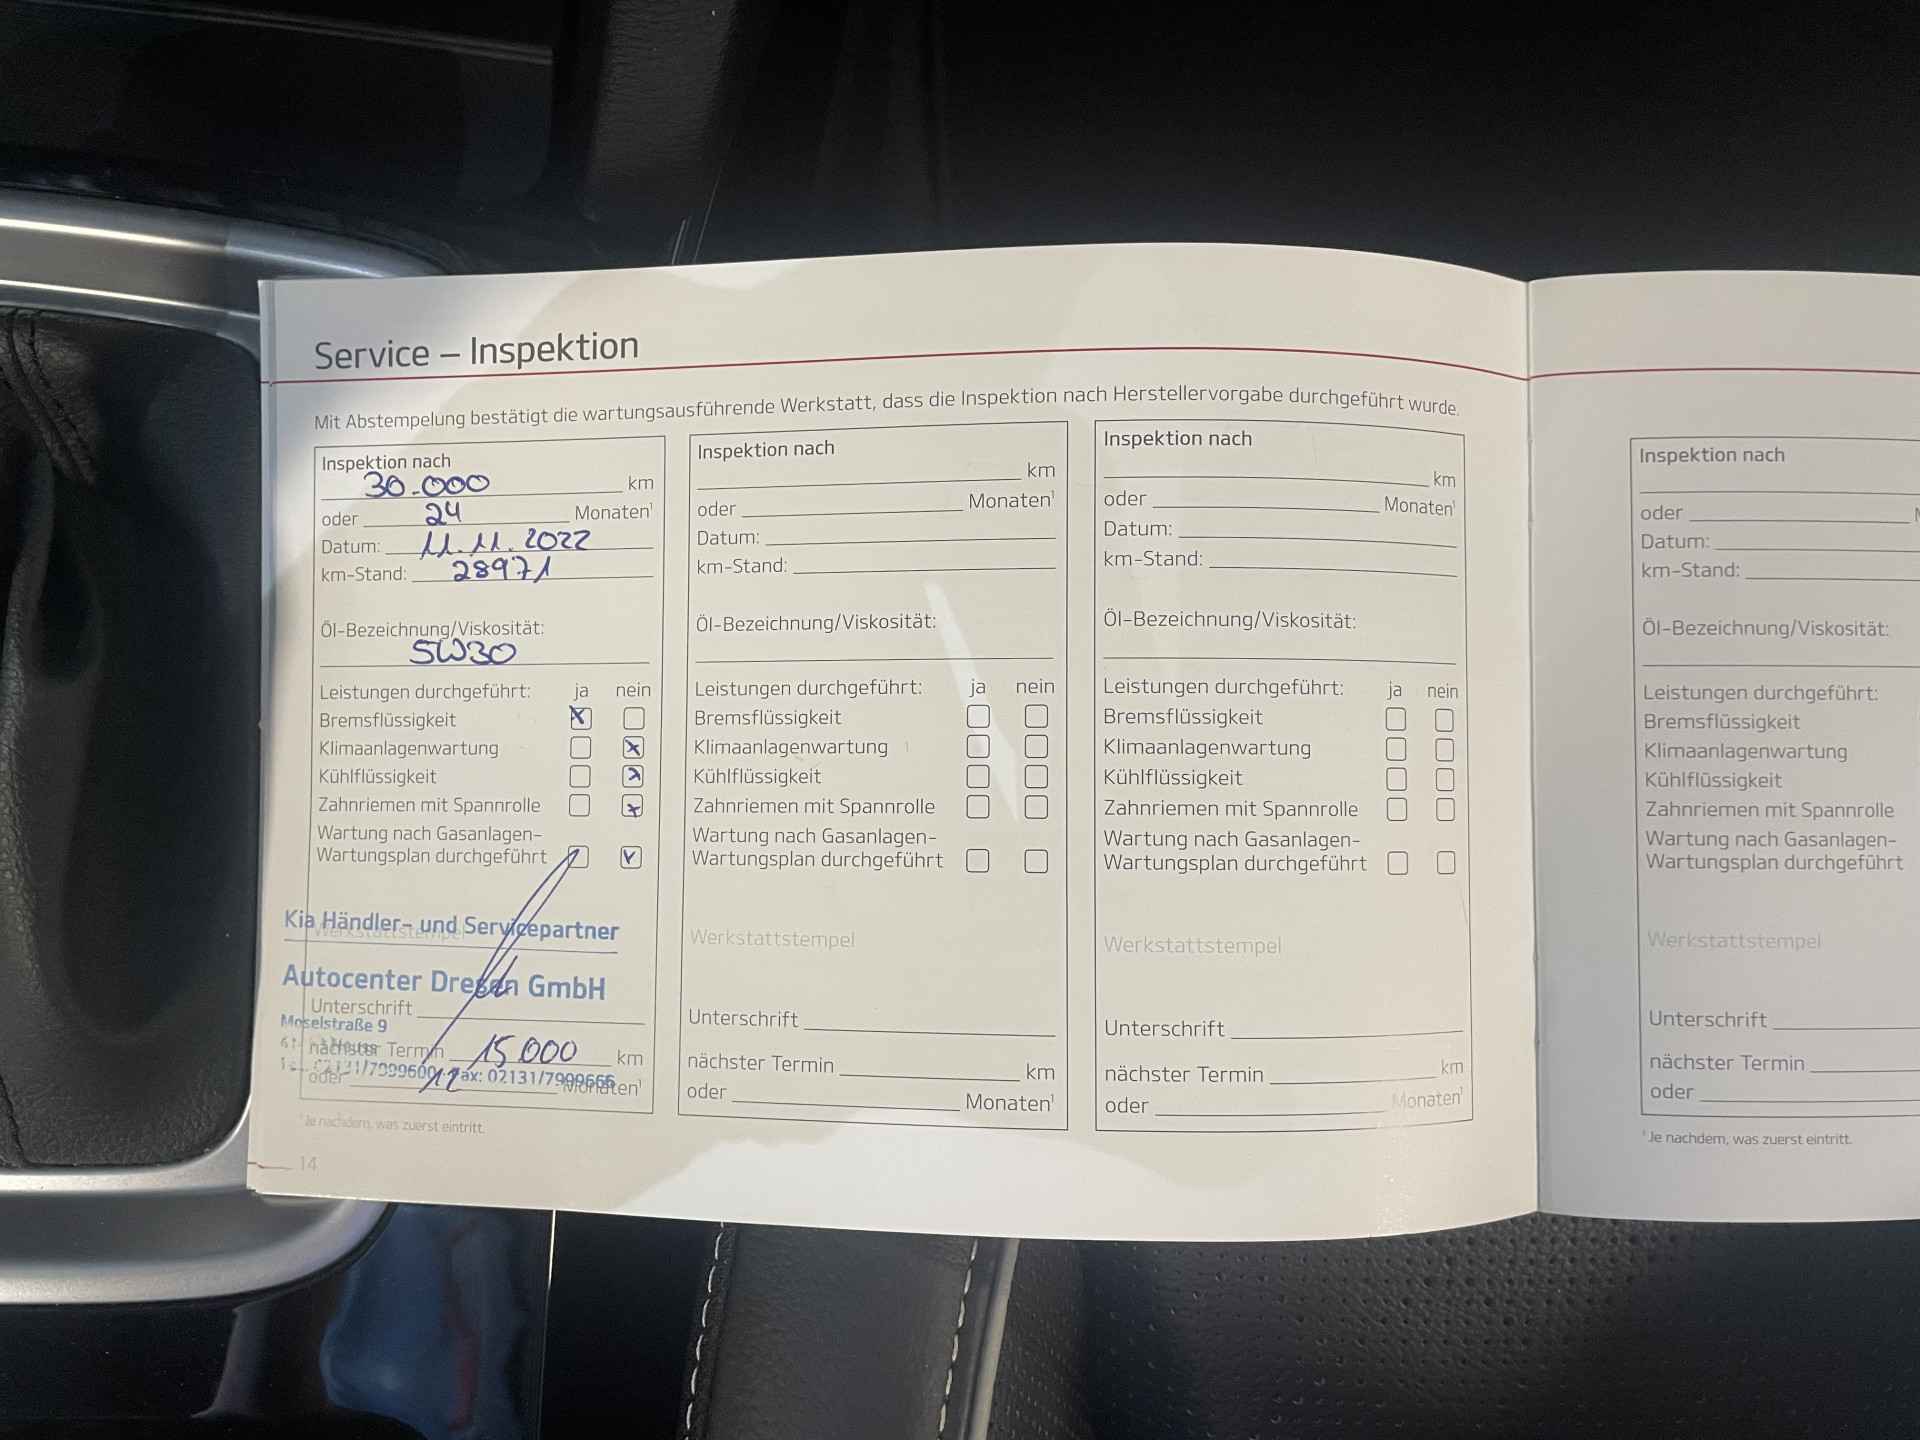 Service – Inspektion
Mit Abstempelung bestätigt die wartungsausführende Werkstatt, dass die Inspektion nach Herstellervorgabe durchgeführt wurde.
Inspektion nach
30.000 km
oder 24 Monaten¹
Datum: 11.11.2022
km-Stand: 28971
Öl-Bezeichnung/Viskosität:
5W30
Leistungen durchgeführt: ja nein
Bremsflüssigkeit
Klimaanlagenwartung
Kühlflüssigkeit
Zahnriemen mit Spannrolle
Wartung nach Gasanlagen-
Wartungsplan durchgeführt
Kia Händler- und Servicepartner
Werkstattstempel
Autocenter Dresen GmbH
Unterschrift
Moselstraße 9
nächster Termin 15.000 km
02131/7999600 Fax: 02131/7999666
oder 12 Monaten¹
¹ Je nachdem, was zuerst eintritt.
14
Inspektion nach
km
oder Monaten¹
Datum:
km-Stand:
Öl-Bezeichnung/Viskosität:
Leistungen durchgeführt: ja nein
Bremsflüssigkeit
Klimaanlagenwartung
Kühlflüssigkeit
Zahnriemen mit Spannrolle
Wartung nach Gasanlagen-
Wartungsplan durchgeführt
Werkstattstempel
Unterschrift
nächster Termin km
oder Monaten¹
Inspektion nach
km
oder Monaten¹
Datum:
km-Stand:
Öl-Bezeichnung/Viskosität:
Leistungen durchgeführt: ja nein
Bremsflüssigkeit
Klimaanlagenwartung
Kühlflüssigkeit
Zahnriemen mit Spannrolle
Wartung nach Gasanlagen-
Wartungsplan durchgeführt
Werkstattstempel
Unterschrift
nächster Termin km
oder Monaten¹
Inspektion nach
oder
Datum:
km-Stand:
Öl-Bezeichnung/Viskosität:
Leistungen durchgeführt:
Bremsflüssigkeit
Klimaanlagenwartung
Kühlflüssigkeit
Zahnriemen mit Spannrolle
Wartung nach Gasanlagen-
Wartungsplan durchgeführt
Werkstattstempel
Unterschrift
nächster Termin
oder
¹ Je nachdem, was zuerst eintritt.